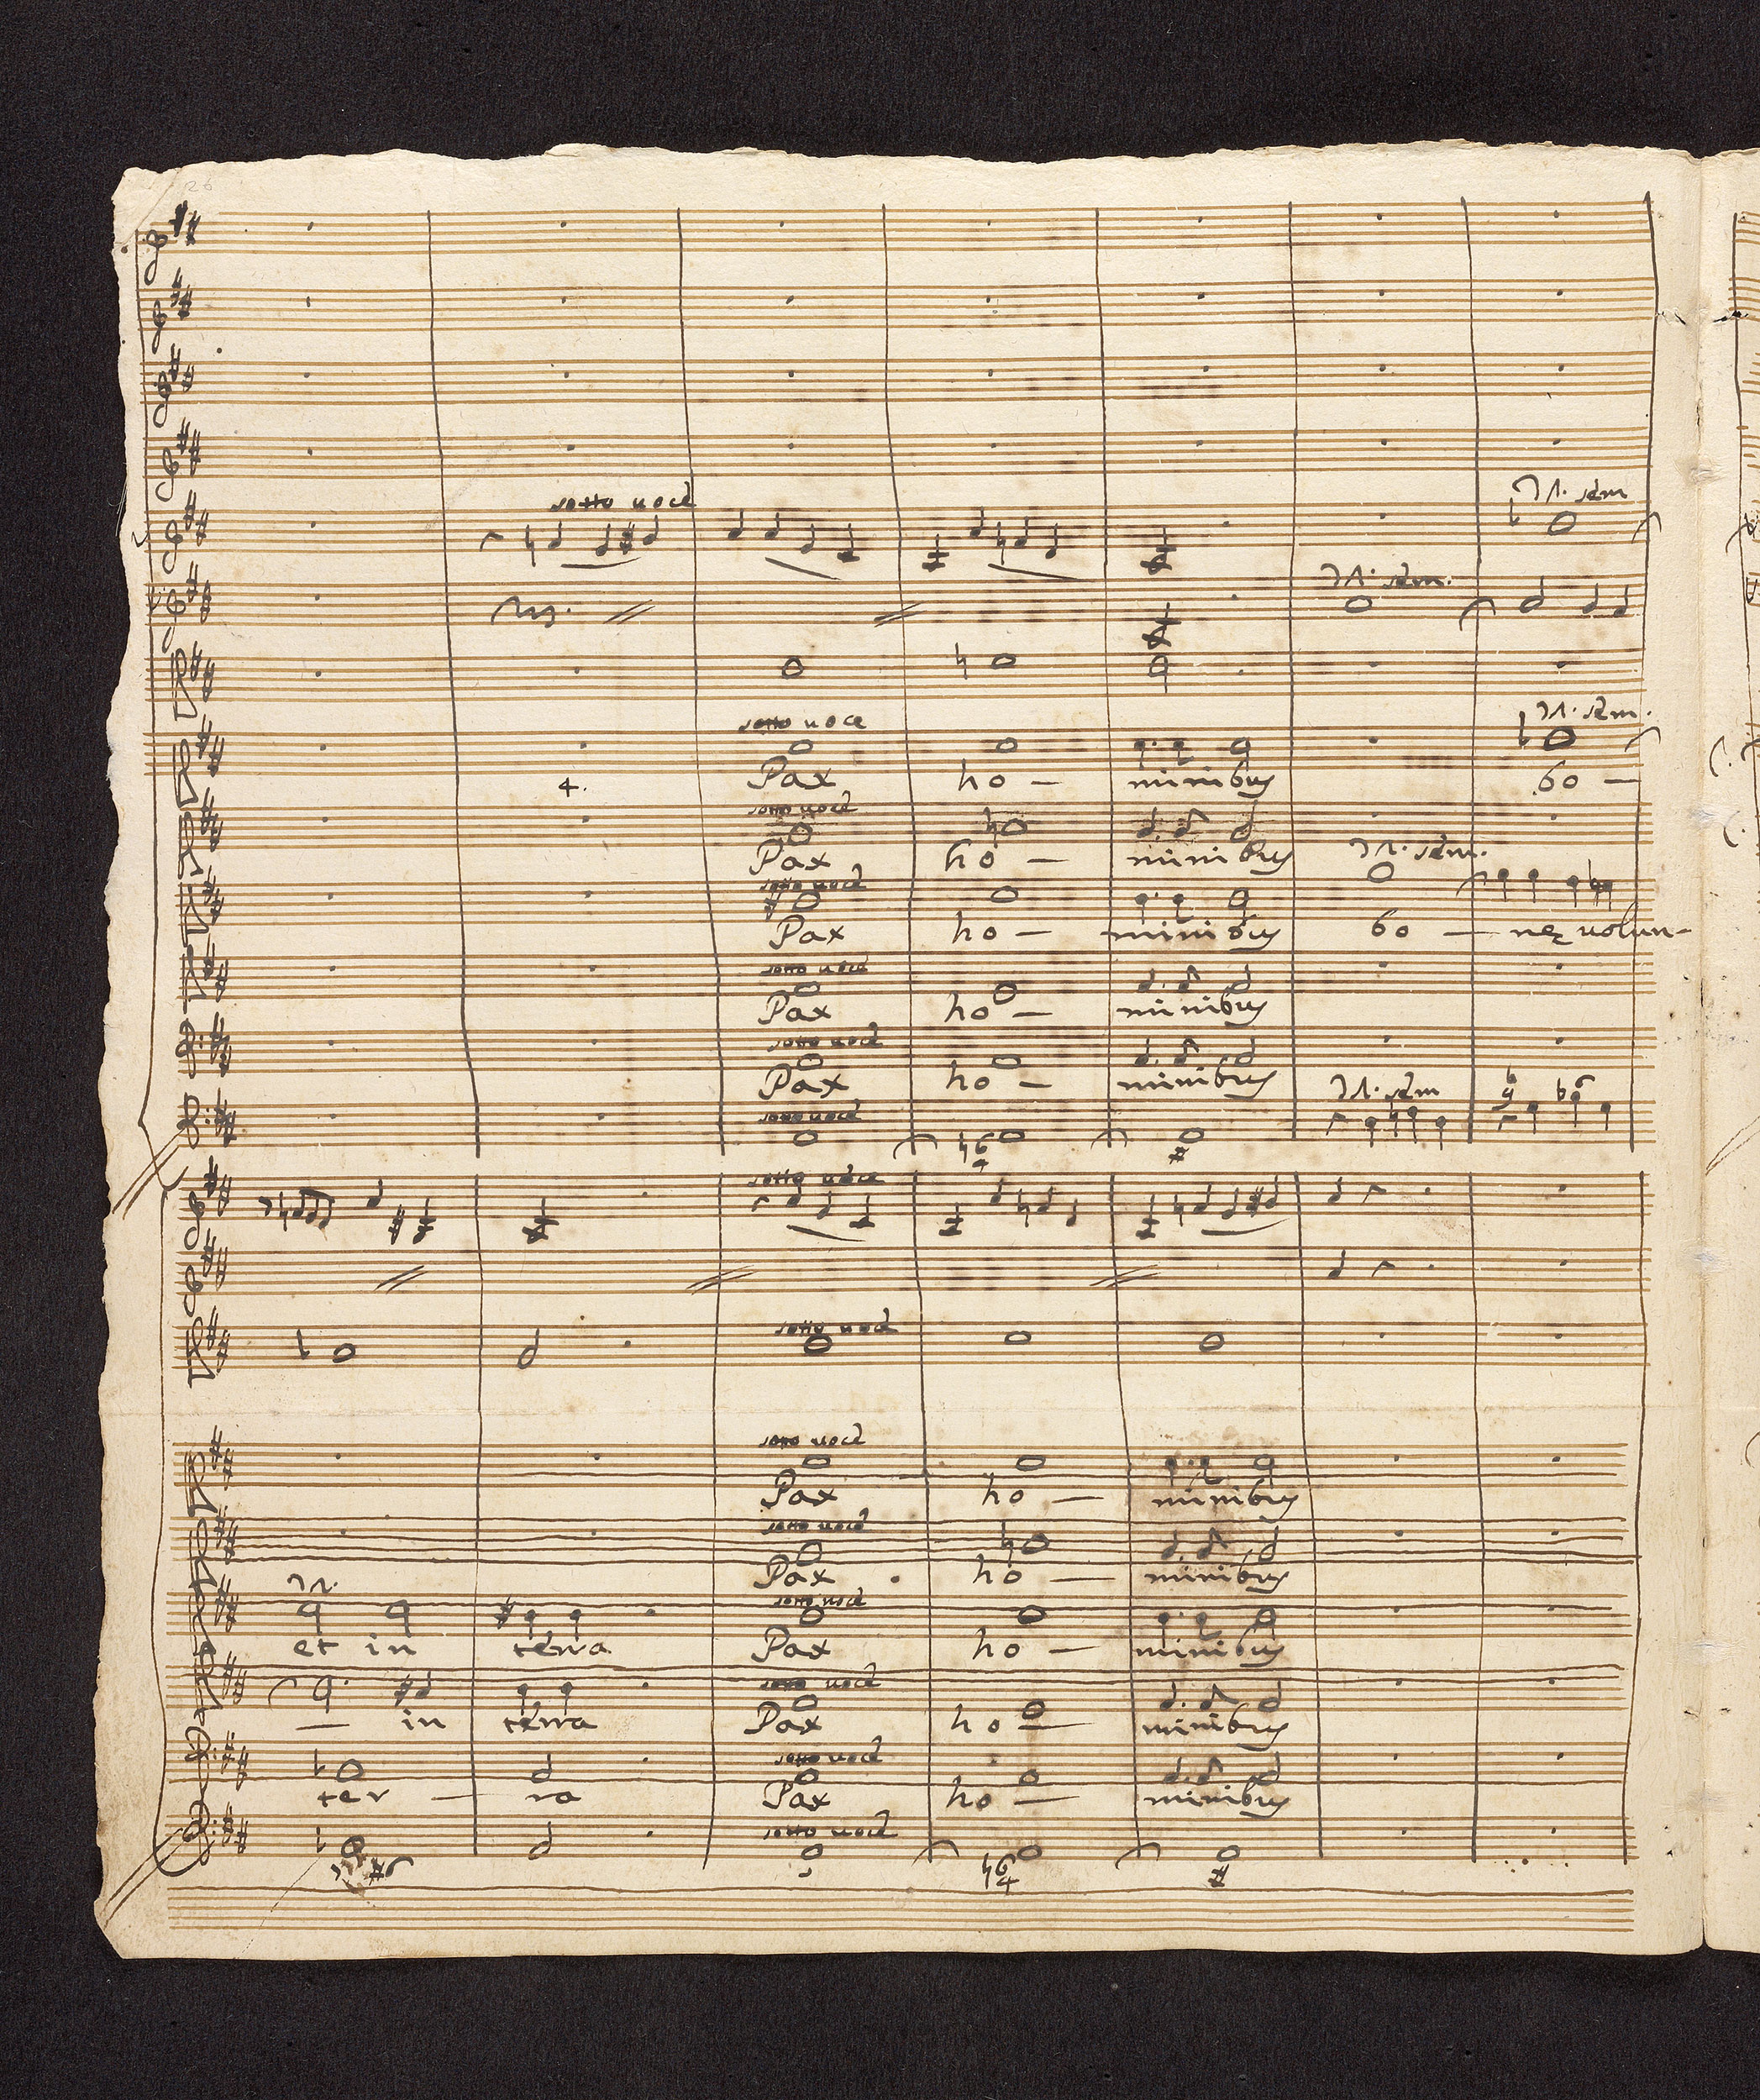 126
sotto voce
N. sem
N. sem.
N. sem.
sotto voce
Pax ho — minibus bo —
4.
sotto voce
Pax ho — minibus
N. sem.
sotto voce
Pax ho — minibus bo — nae volun-
sotto voce
Pax ho — minibus
sotto voce
Pax ho — minibus
N. sem
sotto voce
6
4
sotto voce
sotto voce
sotto voce
Pax ho — minibus
sotto voce
Pax ho — minibus
N.
sotto voce
et in terra Pax ho — minibus
sotto voce
— in terra Pax ho — minibus
sotto voce
ter — ra Pax ho — minibus
sotto voce
6
6
4